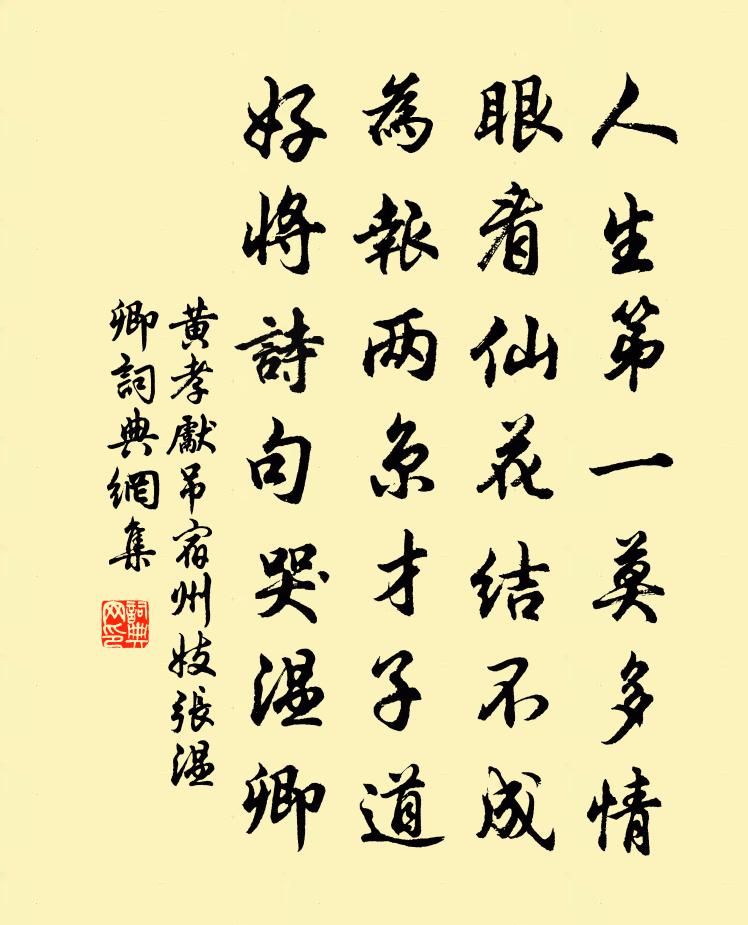 人生第一莫多情
眼看仙花结不成
為報两京才子道
好將詩句哭温卿
黄孝獻吊宿州妓張温
卿詞典網集
詞典网印